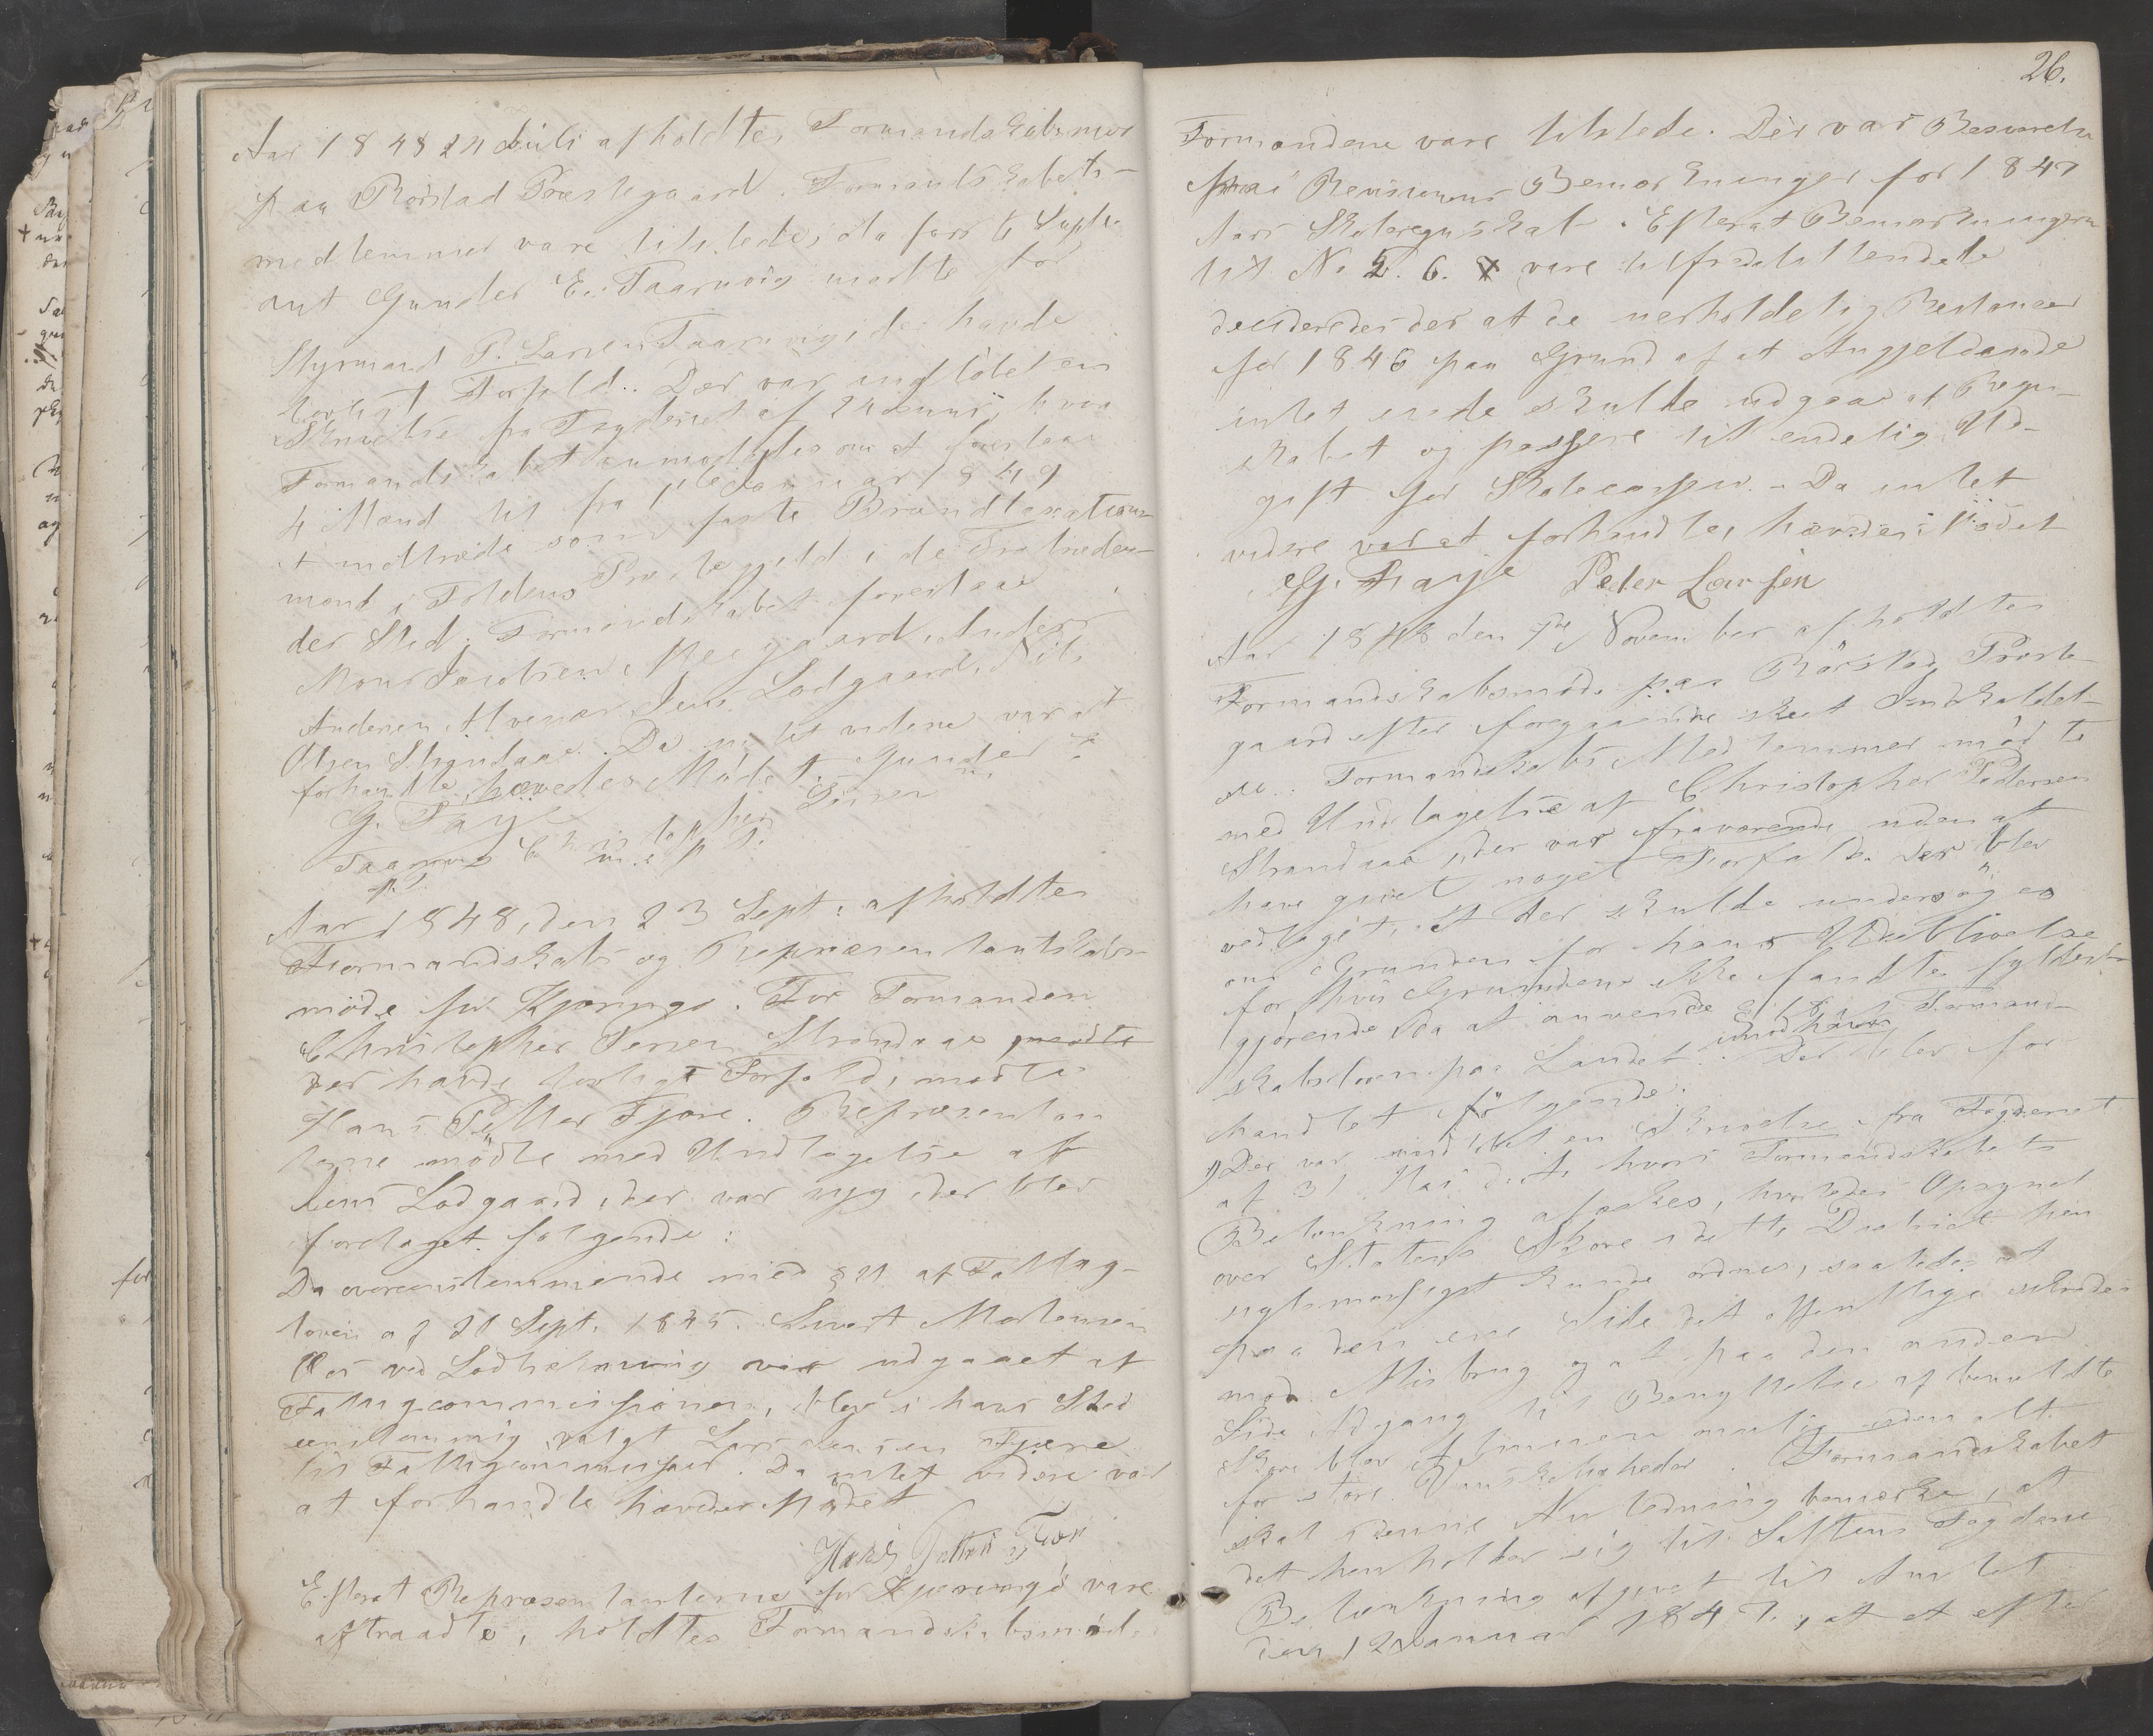 Aar 1848 24 Juli afholdtes Formandskabsmøde
paa Rørstad Præstegaard. Formandskabets-
medlemmer vare tilstede, da først Suple-
ant Gunder E. Taarnvig mødte for
Styrmand P. Larsen Taarnvig, der havde
lovligt Forfald. Der var indløbet en
Skrivelse fra Fogderiet af 24 Juni, hvori
Formandskabet anmodedes om at foreslaae
4 Mænd til fra 1te Januar 1849
at indtræde som faste Brandtaxations-
mænd i Foldens Præstegjeld i de Fratræden-
des Sted; Formandskabet foreslaae
Mons Jacobsen, Anders
Andersen Jens Lodgaard, Nils
Olsen Strandaae. Da intet videre var at
forhandle, hævedes Mødet. Gunder
G. Faye
Taarnvig Christopher Jensen
m. p. P.
Aar 1848, den 23 Sept: afholdtes
Formandskabs og Repræsentantskabs-
møde for Kjæringø. For Formanden
Christopher Jensen Strandaae mødte
der havde lovligt Forfald, mødte
Hans Petter Fjære. Repræsentan
terne mødte med Undtagelse af
Jens Lodgaard, der var syg, der blev
foretaget følgende:
Da overeensstemmende med § 21 af Fattig-
loven af 20 Sept. 1845. Sivert Mortensen
Aas ved Lodtrækning var udgaaet af
Fattigcommissionen, blev i hans Sted
eenstemmig valgt Lars Jensen Fjære
til Fattigcommissair. Da intet videre var
at forhandle hævedes Mødet
Hans Petter Fjær
Efterat Repræsentanterne for Kjæringø vare
aftraadte, holdtes Formandskabsmøde.
26.
Formændene vare tilstede. Der var Besvarelse
paa Revisionens Bemærkninger for 1847
Aars Skoleregnskab. Efterat Bemærkningerne
til No 2. 6. vare tilfredsstillende
decideredes der at de uerholdelig Restancer
for 1846 paa Grund af at Angjeldende
intet eiede skulde udgaae af Regn-
skabet og passere til endelig Ud-
gift for Skolecassen. – Da intet
videre var at forhandle, hævedes Mødet
G. Faye Peder Larsen
Aar 1848 den 7de November afholdtes
Formandskabsmøde paa Rørstad Præste-
gaard efter foregaaende skeet Indkaldel-
se. Formandskabs Medlemmer mødte
med Undtagelse af Christopher Pedersen
Strandaae, der var fraværende uden at
have givet noget Forfald. Der blev
vedtaget, at der skulde undersøges
om Grunden for hans Udeblivelse
for hvis Grundene ikke fandtes fyldest-
gjørende, da at anvende § 18 af Formand-
skabsloven paa Landet imod ham. Der blev for
handlet følgende:
1) Der var indløbet en Skrivelse fra Fogderiet
af 31 Mai d. A. hvori Formandskabets
Betænkning afæskes, hvorledes Opsynet
over Statens Skove i dette District hen
sigtsmæssigst kunde ordnes, saaledes at
paa den ene Side det offentlige sikredes
mod Misbrug og at paa den anden
Side Adgang til Benyttelse af bemeldte
Skove blev Almuen mulig uden alt
for store Vanskeligheder. Formandskabet
skal i denne Anledning bemærke, at
det henholder sig til Saltens Fogderies
Betænkning afgivet til Amtet
den 12 Januar 1847, at at efter